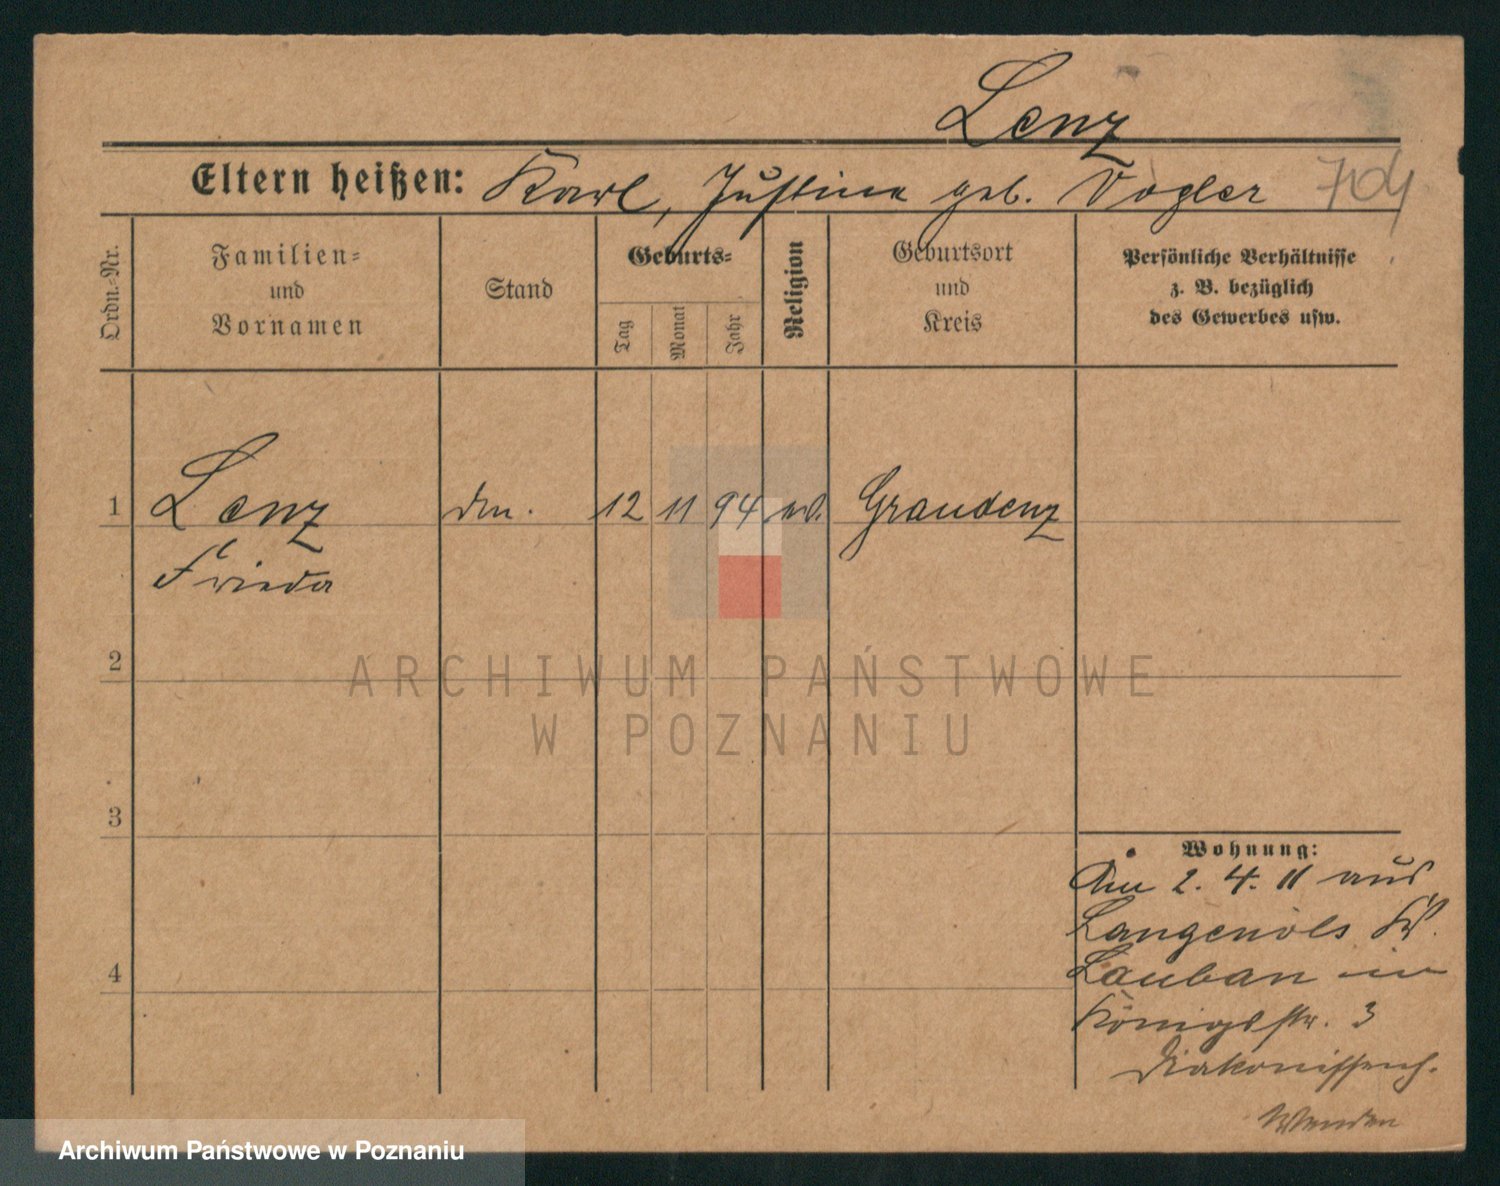 Lenz
Eltern heißen: Karl, Justine geb. Vogler
704
Ordn.-Nr.
Familien-
und
Vornamen
Stand
Geburts-
Tag
Monat
Jahr
Religion
Geburtsort
und
Kreis
Persönliche Verhältnisse
z. B. bezüglich
des Gewerbes usw.
1 Lenz 12 11 94 Graudenz
Frieda
2
3
4
Wohnung:
Am 2. 4. 11 aus
Langenöls Kr.
Lauban in
Königsstr. 3
Wenden
ARCHIWUM PAŃSTWOWE
W POZNANIU
Archiwum Państwowe w Poznaniu